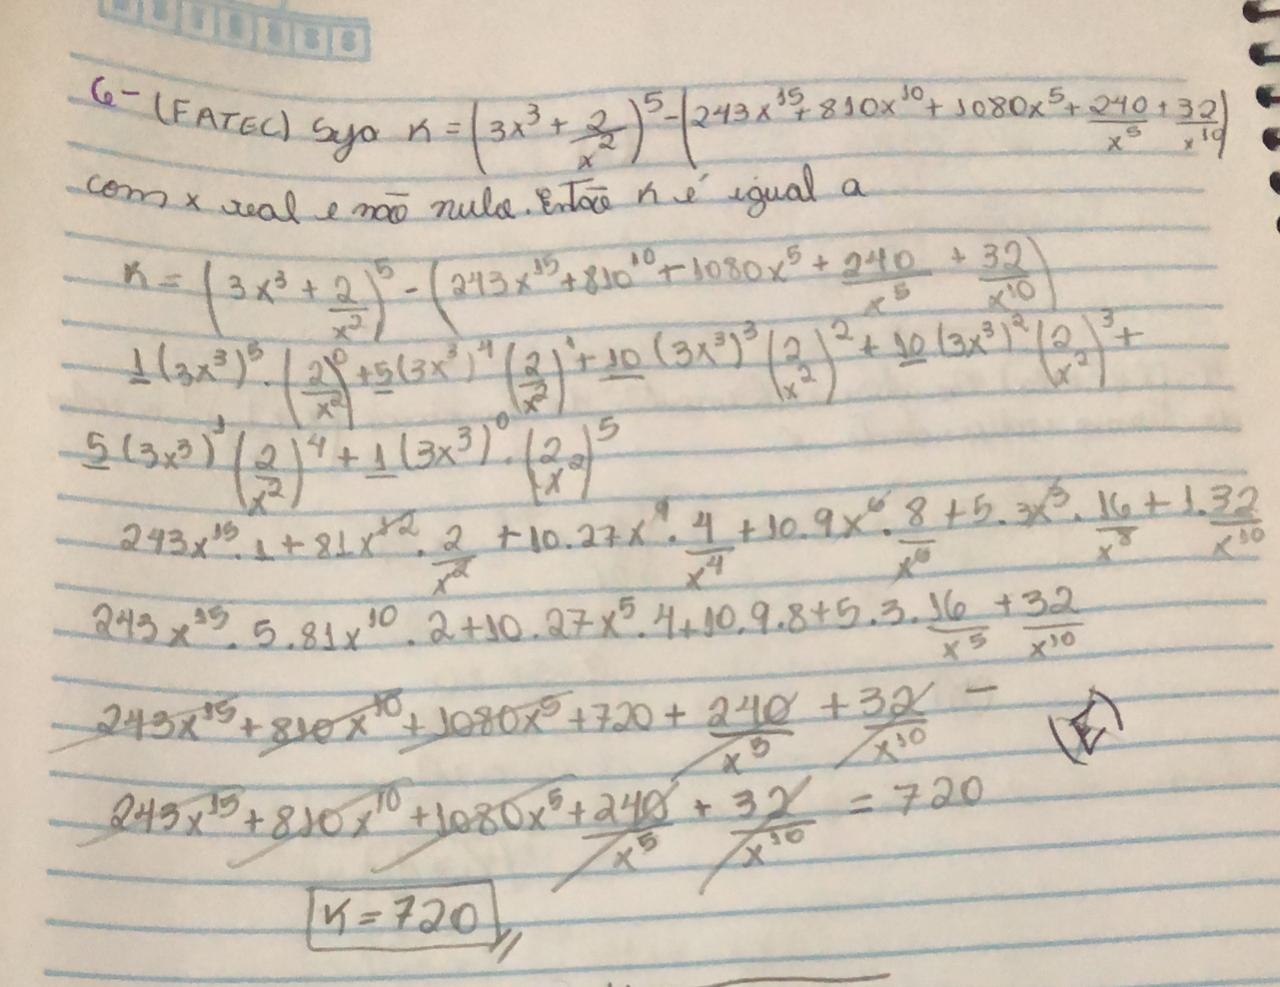 6- (FATEC) Seja K = (3x³ + 2/x²)⁵ - (243x¹⁵ + 810x¹⁰ + 1080x⁵ + 240/x⁵ + 32/x¹⁰)
com x real e não nulo. Então K é igual a
K = (3x³ + 2/x²)⁵ - (243x¹⁵ + 810¹⁰ + 1080x⁵ + 240/x⁵ + 32/x¹⁰)
1(3x³)⁵ . (2/x²)⁰ + 5(3x³)⁴ (2/x²)¹ + 10 (3x³)³ (2/x²)² + 10 (3x³)² (2/x²)³ +
5 (3x³)¹ (2/x²)⁴ + 1 (3x³)⁰ . (2/x²)⁵
243x¹⁵ . 1 + 81x¹² . 2/x² + 10 . 27x⁹ . 4/x⁴ + 10 . 9x⁶ . 8/x⁶ + 5 . 3x³ . 16/x⁸ + 1 . 32/x¹⁰
243x¹⁵ . 5 . 81x¹⁰ . 2 + 10 . 27x⁵ . 4 + 10 . 9 . 8 + 5 . 3 . 16/x⁵ + 32/x¹⁰
243x¹⁵ + 810x¹⁰ + 1080x⁵ + 720 + 240/x⁵ + 32/x¹⁰ - (E)
243x¹⁵ + 810x¹⁰ + 1080x⁵ + 240/x⁵ + 32/x¹⁰ = 720
K = 720